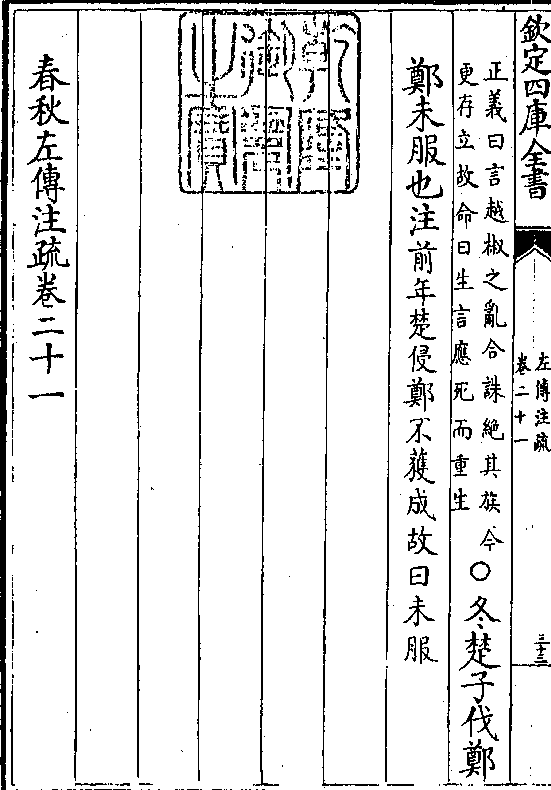 欽定四庫全書
左傳注疏
卷二十一
三十三
正義曰言越椒之亂合誅絕其族今
更存立故命曰生言應死而重生
○冬楚子伐鄭
鄭未服也注前年楚侵鄭不獲成故曰未服
乾隆御覽之寶
春秋左傳注疏卷二十一